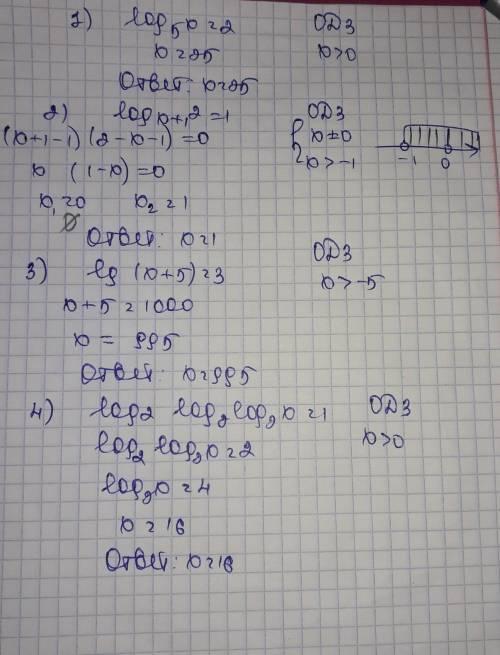 1) log₅x=2 ОДЗ
x=25 x>0
Ответ: x=25
2) logₓ₊₁2=1 ОДЗ
(x+1-1)(2-x-1)=0 { x≠0
x (1-x)=0 x>-1 -1 0
x₁=0 x₂=1
∅
Ответ: x=1
3) lg (x+5)=3 ОДЗ
x+5=1000 x>-5
x=995
Ответ: x=995
4) log2 log₂log₂x=1 ОДЗ
log₂ log₂x=2 x>0
log₂x=4
x=16
Ответ: x=16